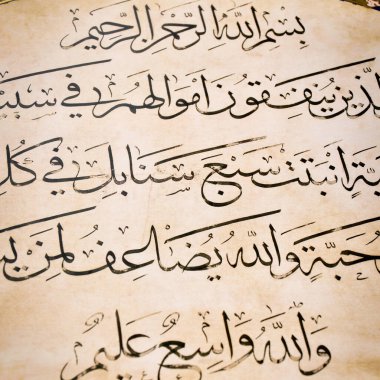 بسم الله الرحمن الرحيم
الذين ينفقون اموالهم في سبيـ
ـبة انبتت سبع سنابل في كل
حبة والله يضاعف لمن يشـ
والله واسع عليم